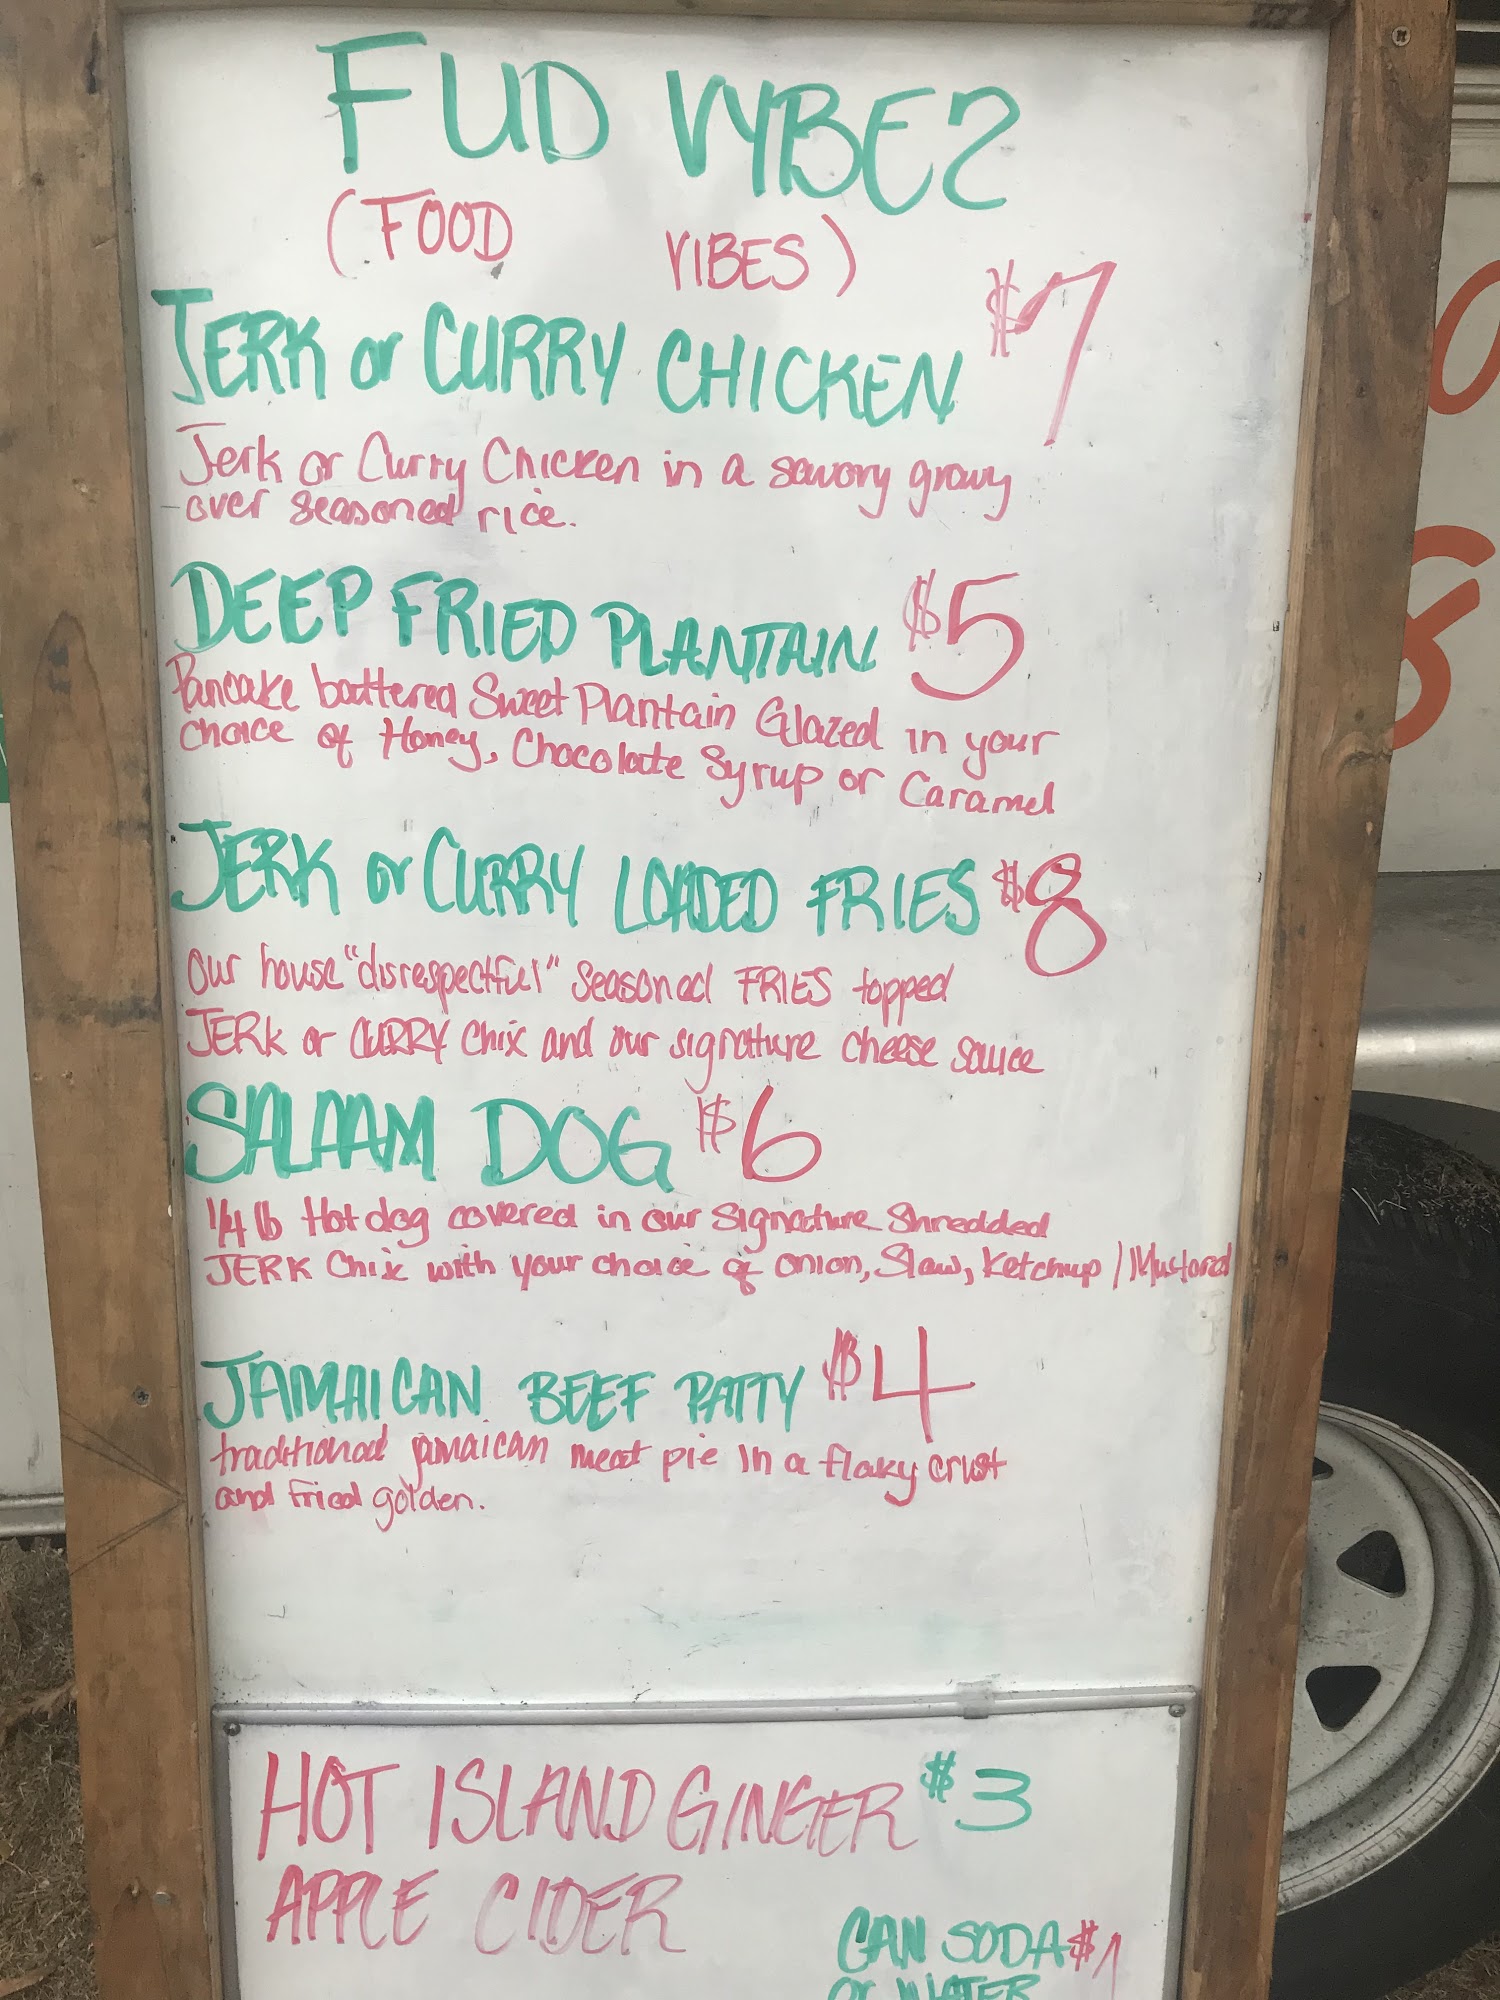 FUD VYBEZ
(FOOD VIBES)
JERK or CURRY CHICKEN $7
Jerk or Curry Chicken in a savory gravy
over seasoned rice.
DEEP FRIED PLANTAIN $5
Pancake battered Sweet Plantain Glazed in your
choice of Honey, Chocolate Syrup or Caramel
JERK or CURRY LOADED FRIES $8
our house "disrespectful" seasoned FRIES topped
JERK or CURRY Chix and our signature cheese sauce
SALAAM DOG $6
1/4 lb Hot dog covered in our signature shredded
JERK Chix with your choice of onion, Slaw, Ketchup / Mustard
JAMAICAN BEEF PATTY $4
traditional jamaican meat pie in a flaky crust
and fried golden.
HOT ISLAND GINGER $3
APPLE CIDER
CAN SODA $1
or WATER